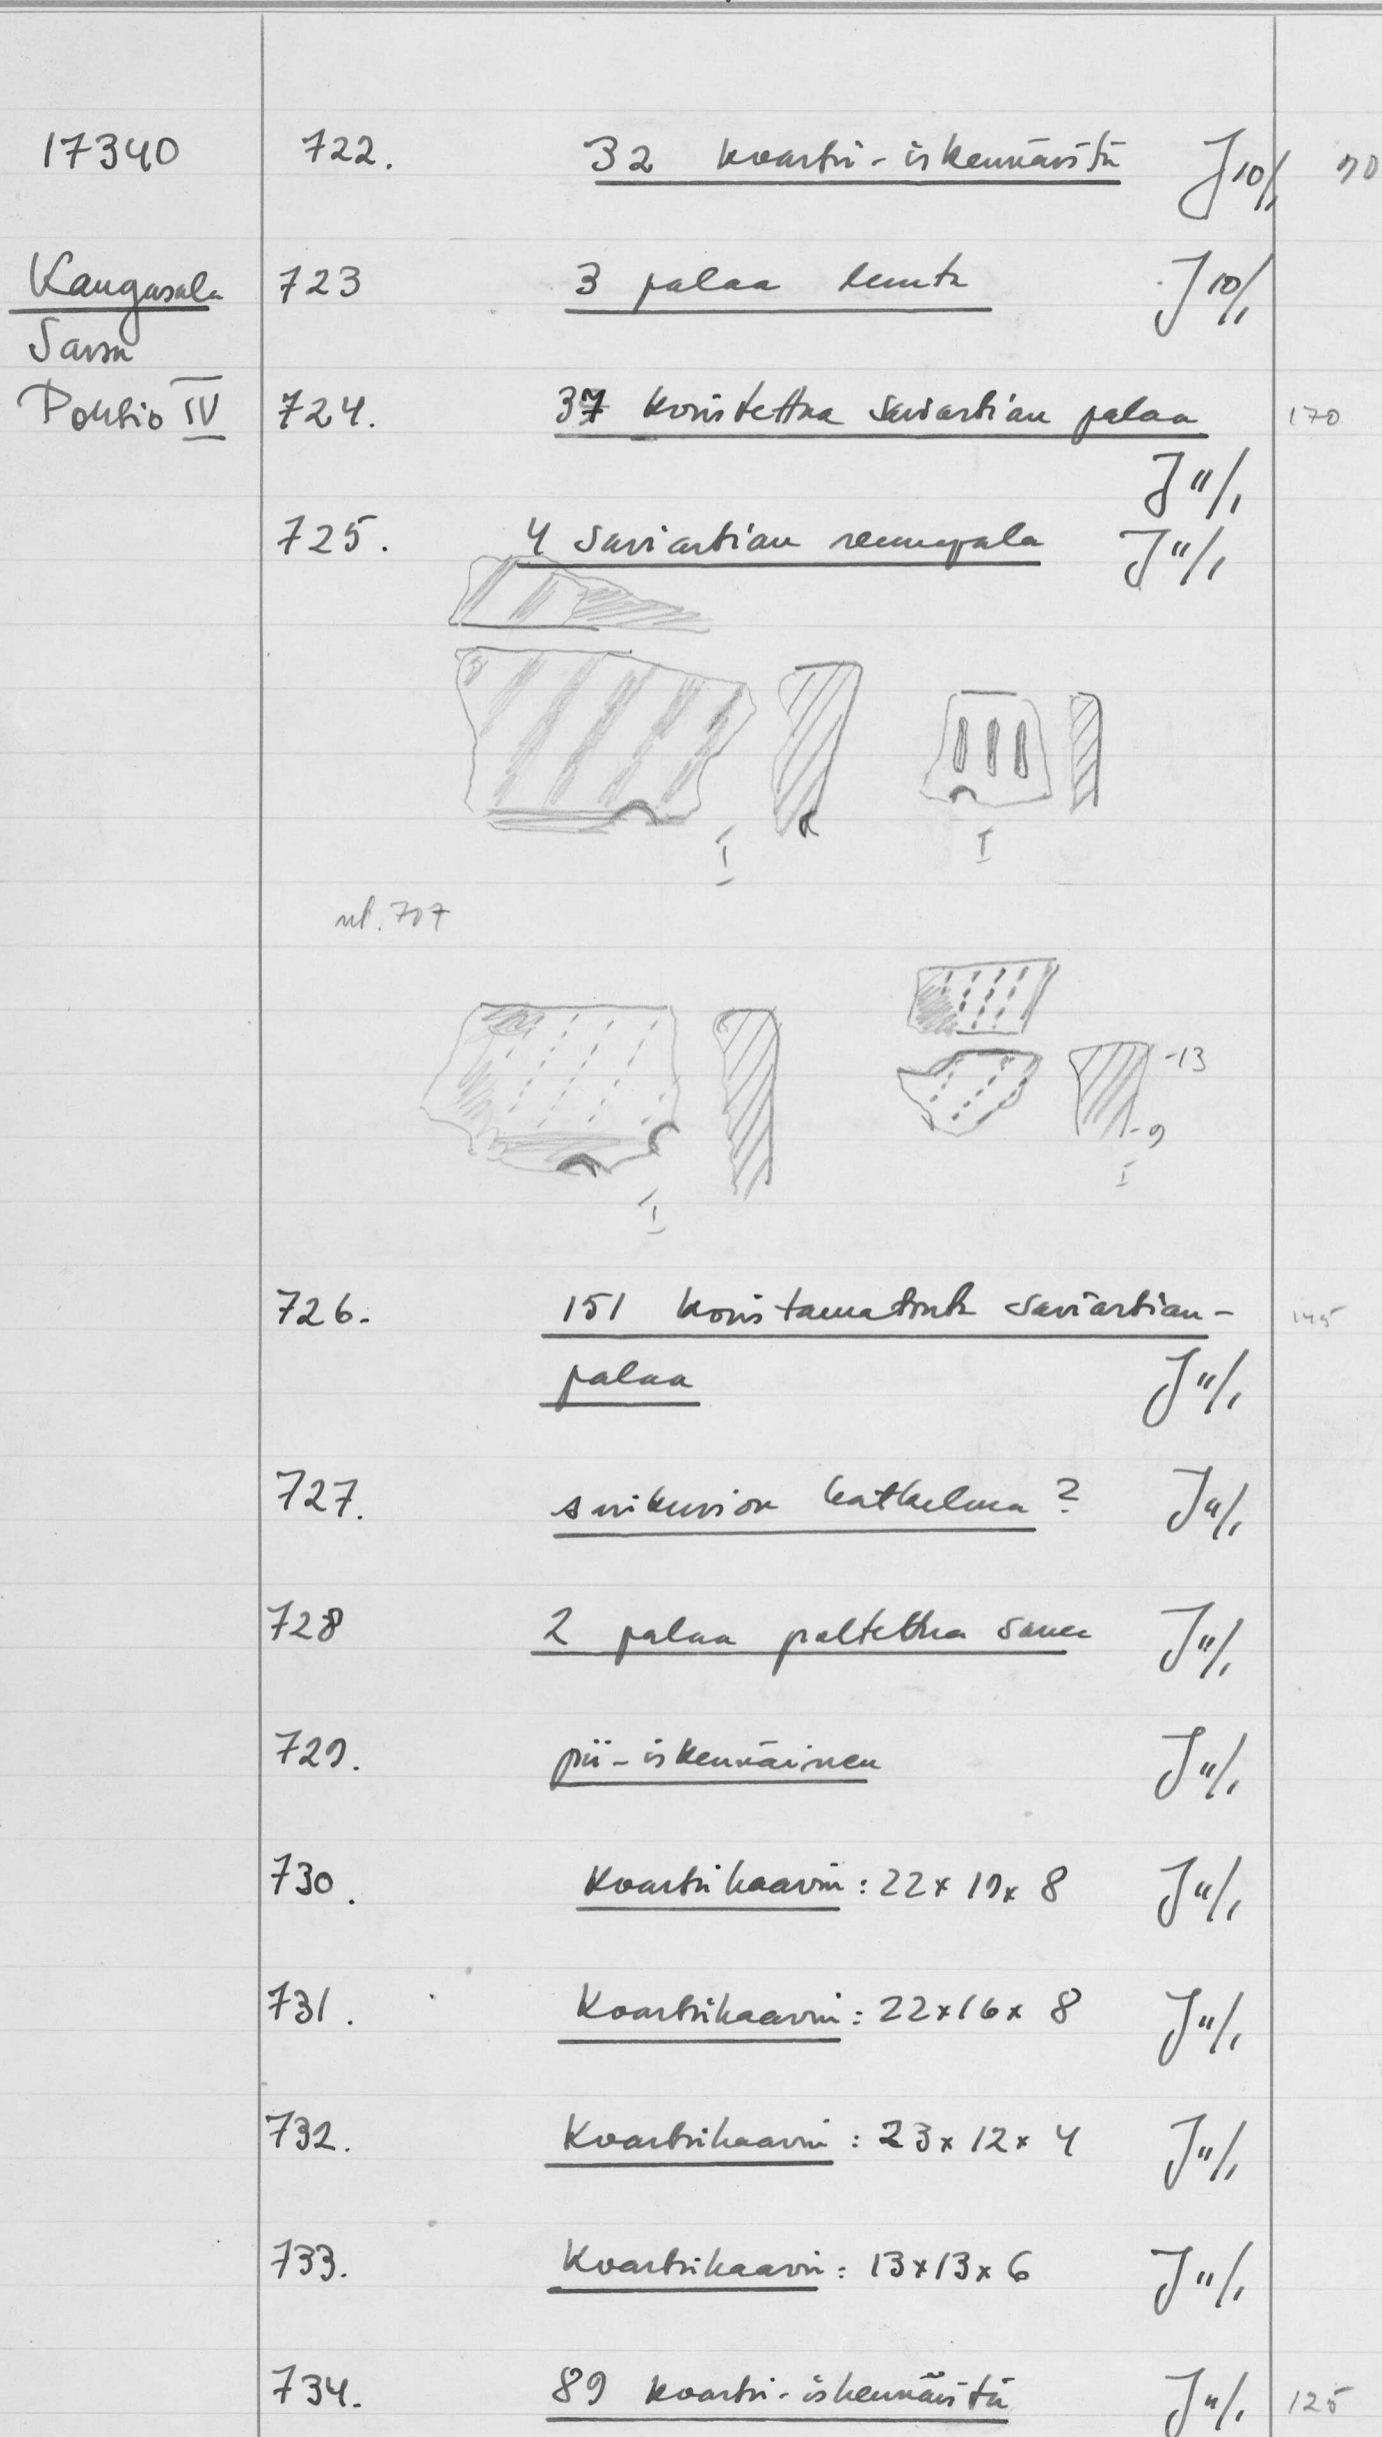 17340 722. 32 kvartsi-iskennäistä J 10/1 70
Kangasala 723 3 palaa luuta J 10/1
Sarsa
Pohtio IV 724. 37 koristettua saviastian palaa 170
J 11/1
725. 4 saviastian reunapala J 11/1
I I
nk. 707
-13
-9
I
I
726. 151 koristamatonta saviastian- 145
palaa J 11/1
727. savikuvion katkelma? J 11/1
728 2 palaa poltettua savea J 11/1
729. pii-iskennäinen J 11/1
730. Kvartsikaavin: 22x19x8 J 11/1
731. Kvartsikaavin: 22x16x8 J 11/1
732. Kvartsikaavin: 23x12x4 J 11/1
733. Kvartsikaavin: 13x13x6 J 11/1
734. 89 kvartsi-iskennäistä J 11/1 125